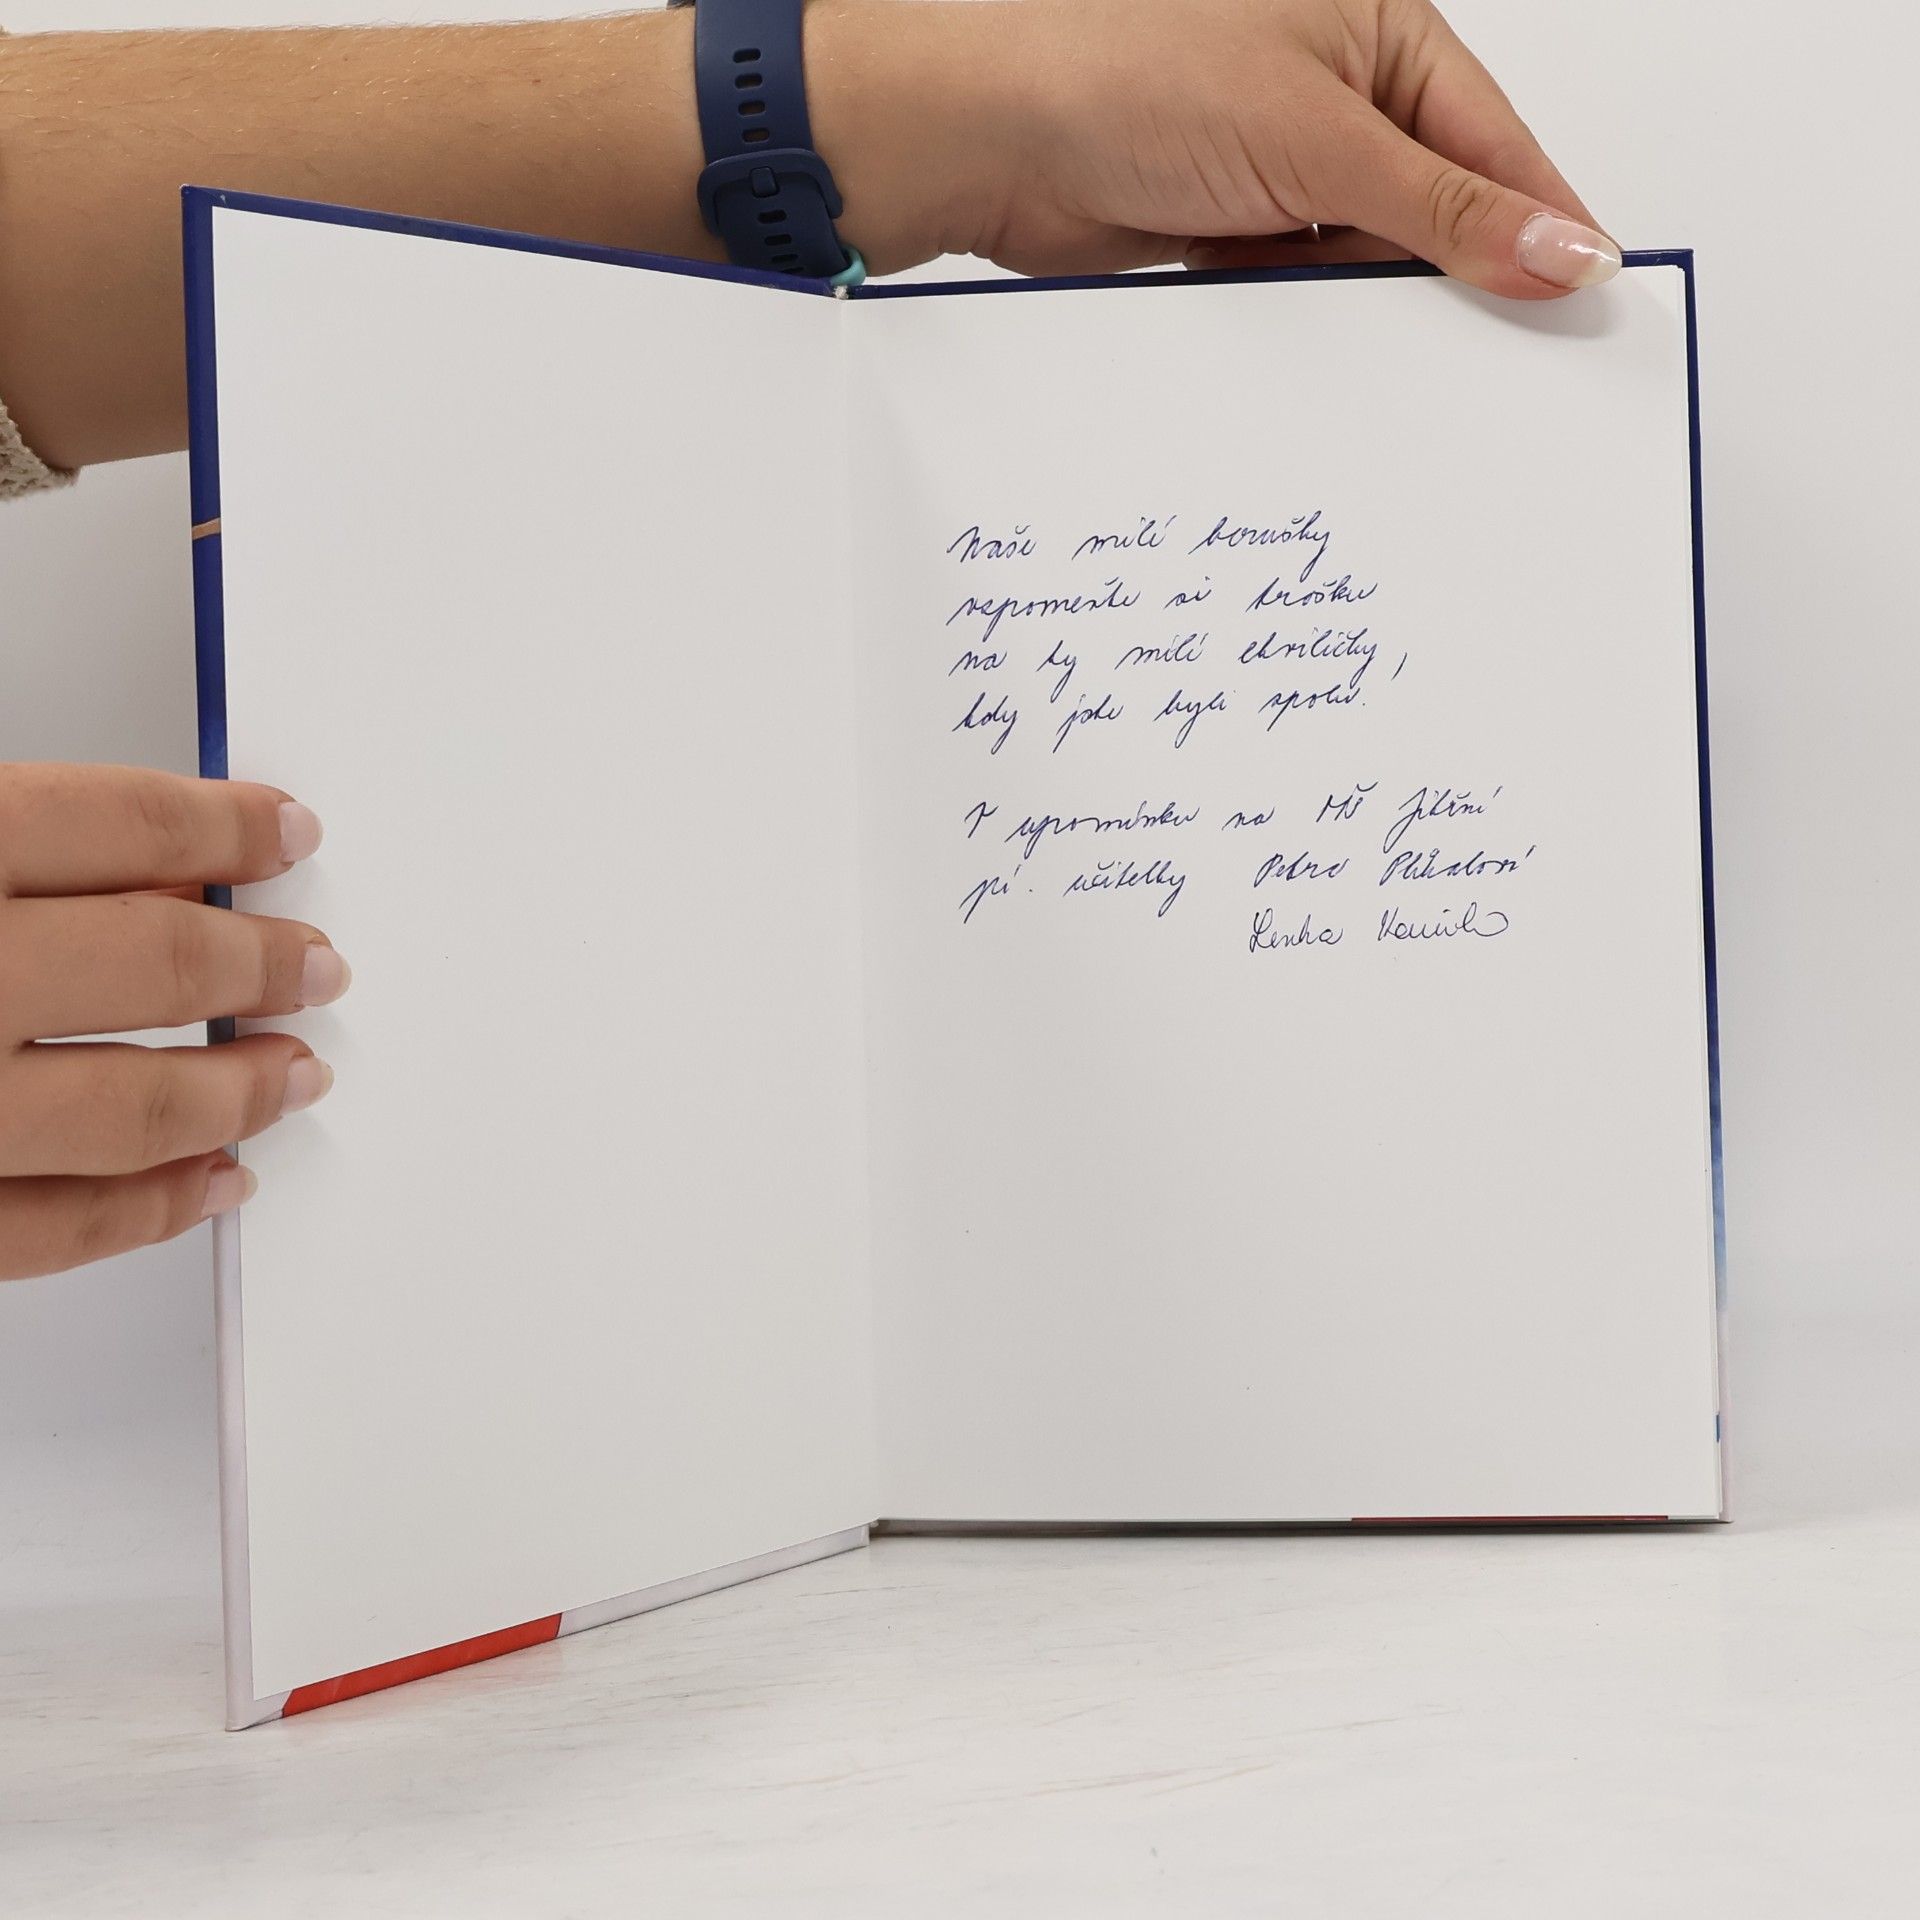 Naše milé berušky
vzpomeňte si trošku
na ty milé chviličky,
kdy jste byli spolu.
V upomínku na MŠ Jitřní
pí. učitelky Petra
Lenka